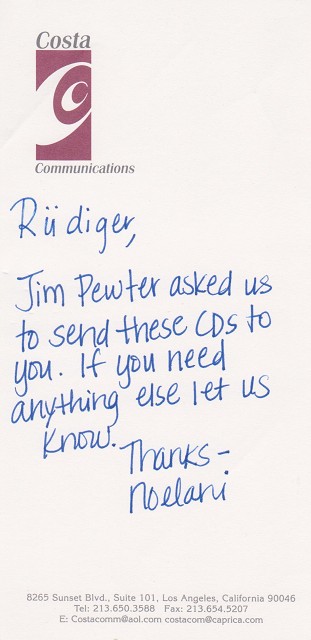 Costa
Communications
Rüdiger,
Jim Pewter asked us
to send these CDs to
you. If you need
anything else let us
know.
Thanks-
Noelani
8265 Sunset Blvd., Suite 101, Los Angeles, California 90046
Tel: 213.650.3588 Fax: 213.654.5207
E: Costacomm@aol.com costacom@caprica.com